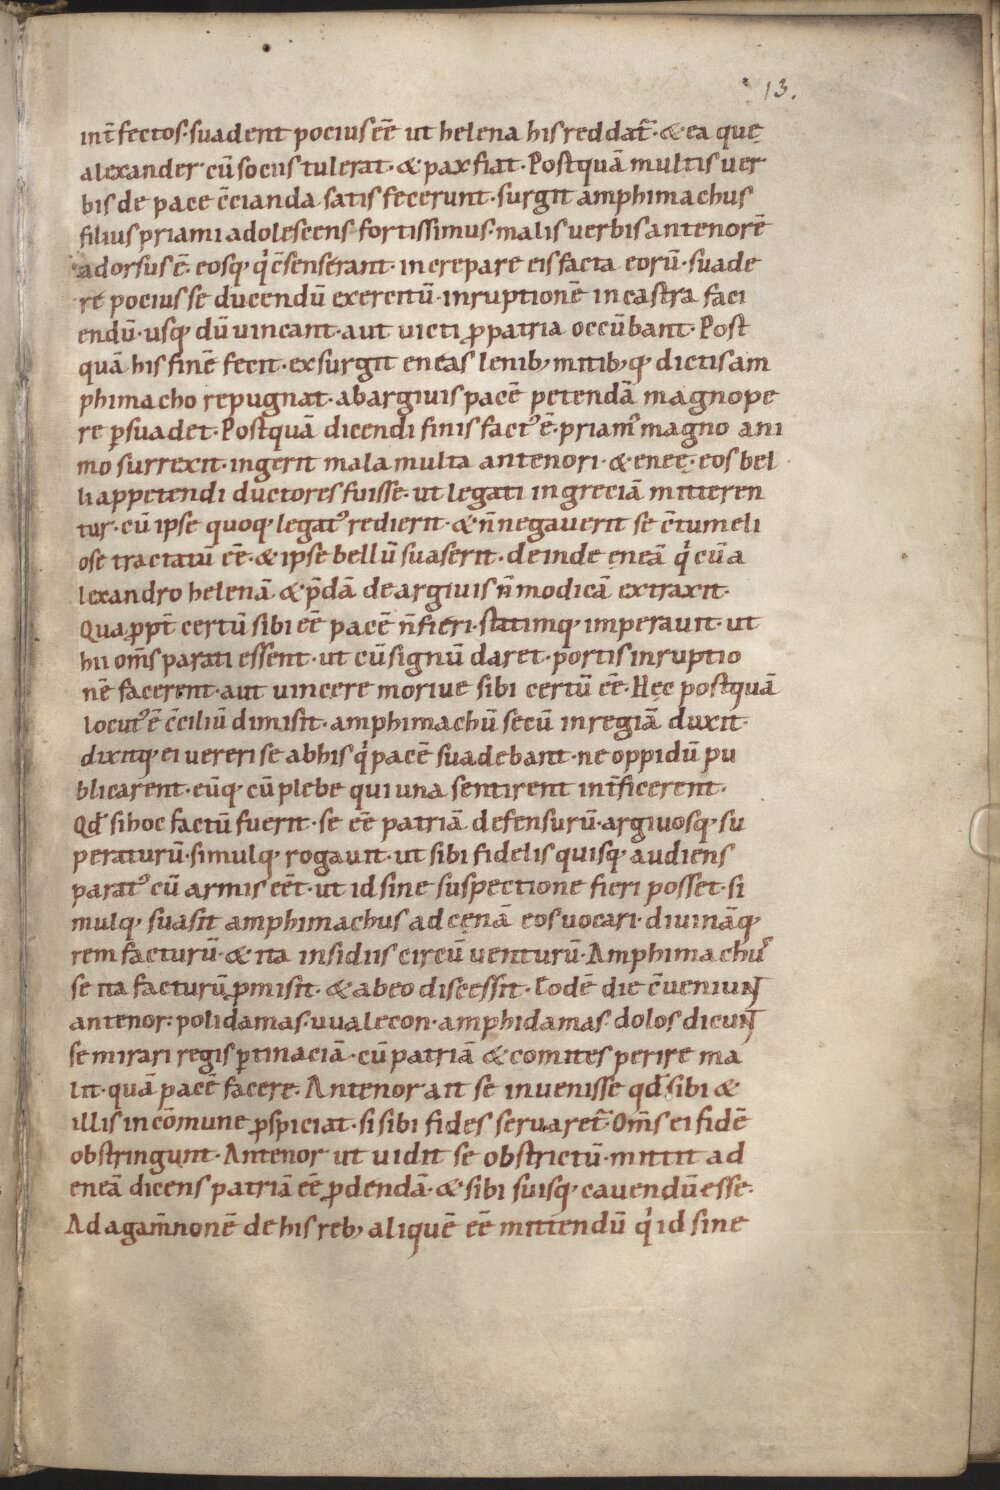 13.
int̄fectos· suadent pocius eē ut helena his reddat̄· & ea quę
alexander cū sociis tulerat· & pax fiat· Postquā multis uer
bis de pace c̄cianda satis fecerunt· surgit amphimachus
filius priami adolescens fortissimus· malis uerbis antenorē
adorsus ē· eosq; qͥ c̄senserant· increpare eis facta eorū· suade
re pocius se ducendū exercitū· inruptionē in castra faci
endū· usq; dū uincant· aut uicti ꝓ patria occūbant· Post
quā his finē fecit· exsurgit eneas lenib; mitib;q; dictis am
phimacho repugnat· ab argiuis pacē petendā magnope
re ꝑsuadet· Postquā dicendi finis factꝰ ē· priamꝰ magno ani
mo surrexit· ingerit mala multa antenori· & eneę· eos bel
li appetendi ductores fuisse· ut legati in greciā mitteren
tur· cū ipse quoq; legatꝰ redierit· & n̄ negauerit se c̄tumeli
ose tractatū eē· & ipse bellū suaserit· deinde eneā qͥ cū a
lexandro helenā· & p̄dā de argiuis n̄ modicā extraxit·
Qua ꝓpt̄ certū sibi eē pacē n̄ fieri· statimq; imperauit· ut
hii om̄s parati essent· ut cū signū daret· portis inruptio
nē facerent· aut uincere moriue sibi certū eē· Hęc postquā
locutꝰ ē c̄ciliū dimisit· amphimachū secū in regiā duxit·
dixitq; ei uereri se ab his qͥ pacē suadebant· ne oppidū pu
blicarent· eūq; cū plebe qui una sentirent int̄ficerent·
Qđ si hoc factū fuerit· se eē patriā defensurū· argiuosq; su
peraturū· simulq; rogauit· ut sibi fidelis quisq; audiens
paratꝰ cū armis eēt· ut id sine suspectione fieri posset· si
mulq; suasit amphimachus ad cęnā eos uocari· diuināq;
rem facturū· & ita insidiis circū uenturū· Amphimachuſ
se ita facturū ꝓmisit· & ab eo discessit· Eodē die c̄ueniuNT
antenor· polidamas· uualecon· amphidamas· dolos dicuNT
se mirari regis ꝑtinaciā· cū patriā & comites perire ma
lit· quā pacē facere· Antenor ait se inuenisse qđ sibi &
illis in cōmune ꝓspiciat· si sibi fides seruaret̄· Om̄s ei fidē
obstringunt· Antenor ut uidit se obstrictū· mittit ad
eneā dicens patriā eē ꝓdendā· & sibi suisq; cauendū esse·
Ad agam̄nonē de his reb; aliquē eē mittendū qͥ id sine